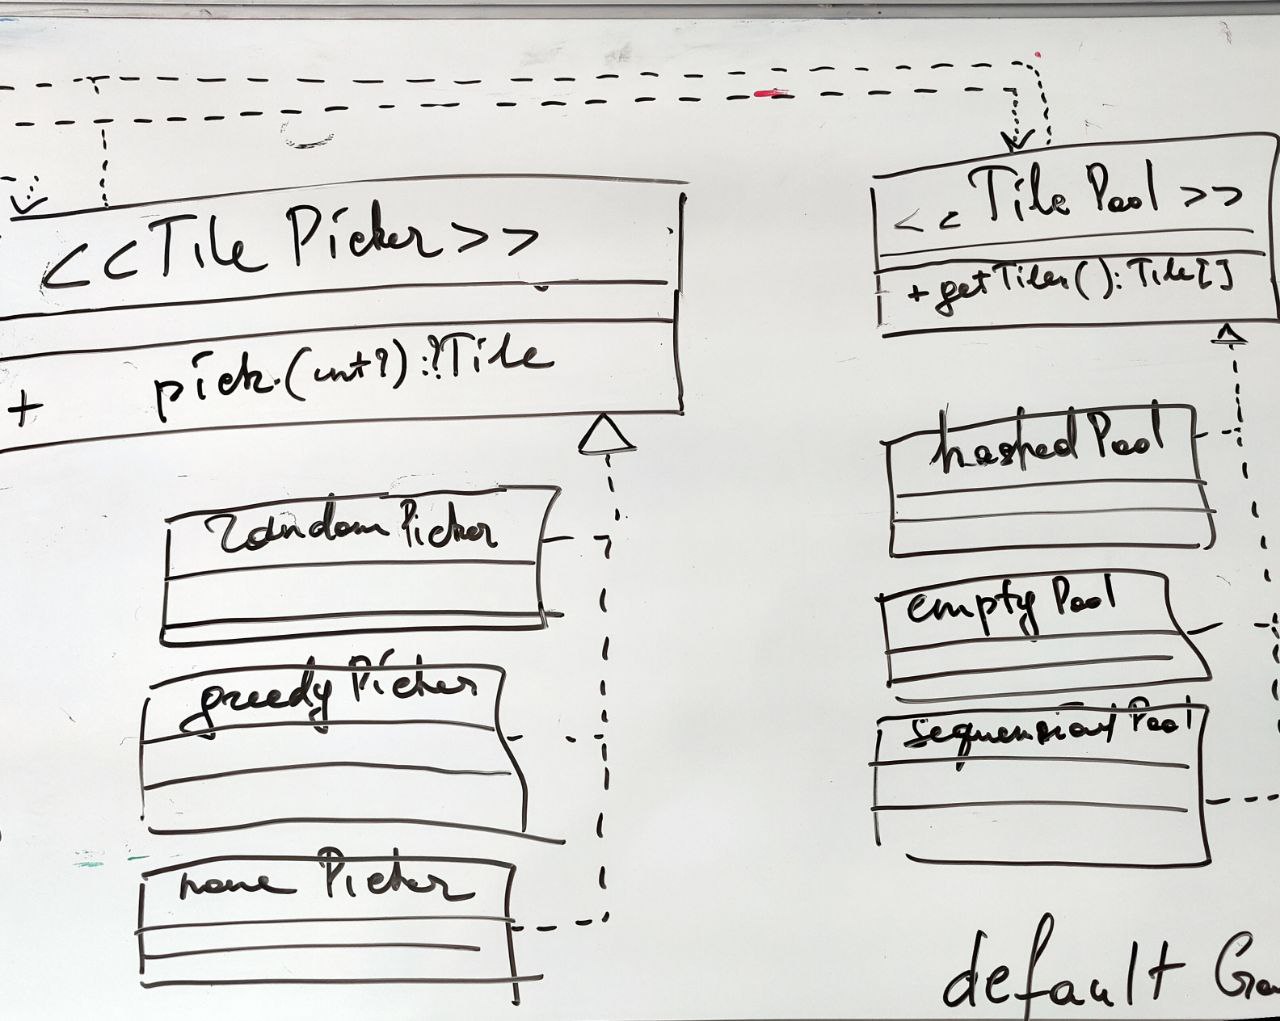 <<Tile Picker>>
+ pick.(int?):?Tile
randomPicker
greedy Picker
none Picker
<< Tile Pool >>
+ getTiles(): Tile[]
hashed Pool
empty Pool
sequensial Pool
default